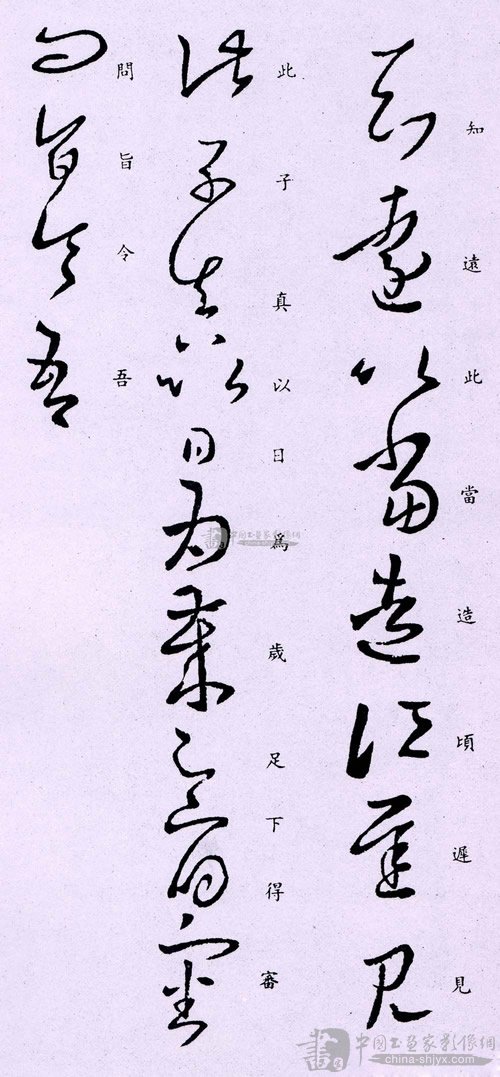 知遠此當造頃遲見
此子真以日爲歲足下得審
問旨令吾
中國书畫家影像網
china-shjyx.com